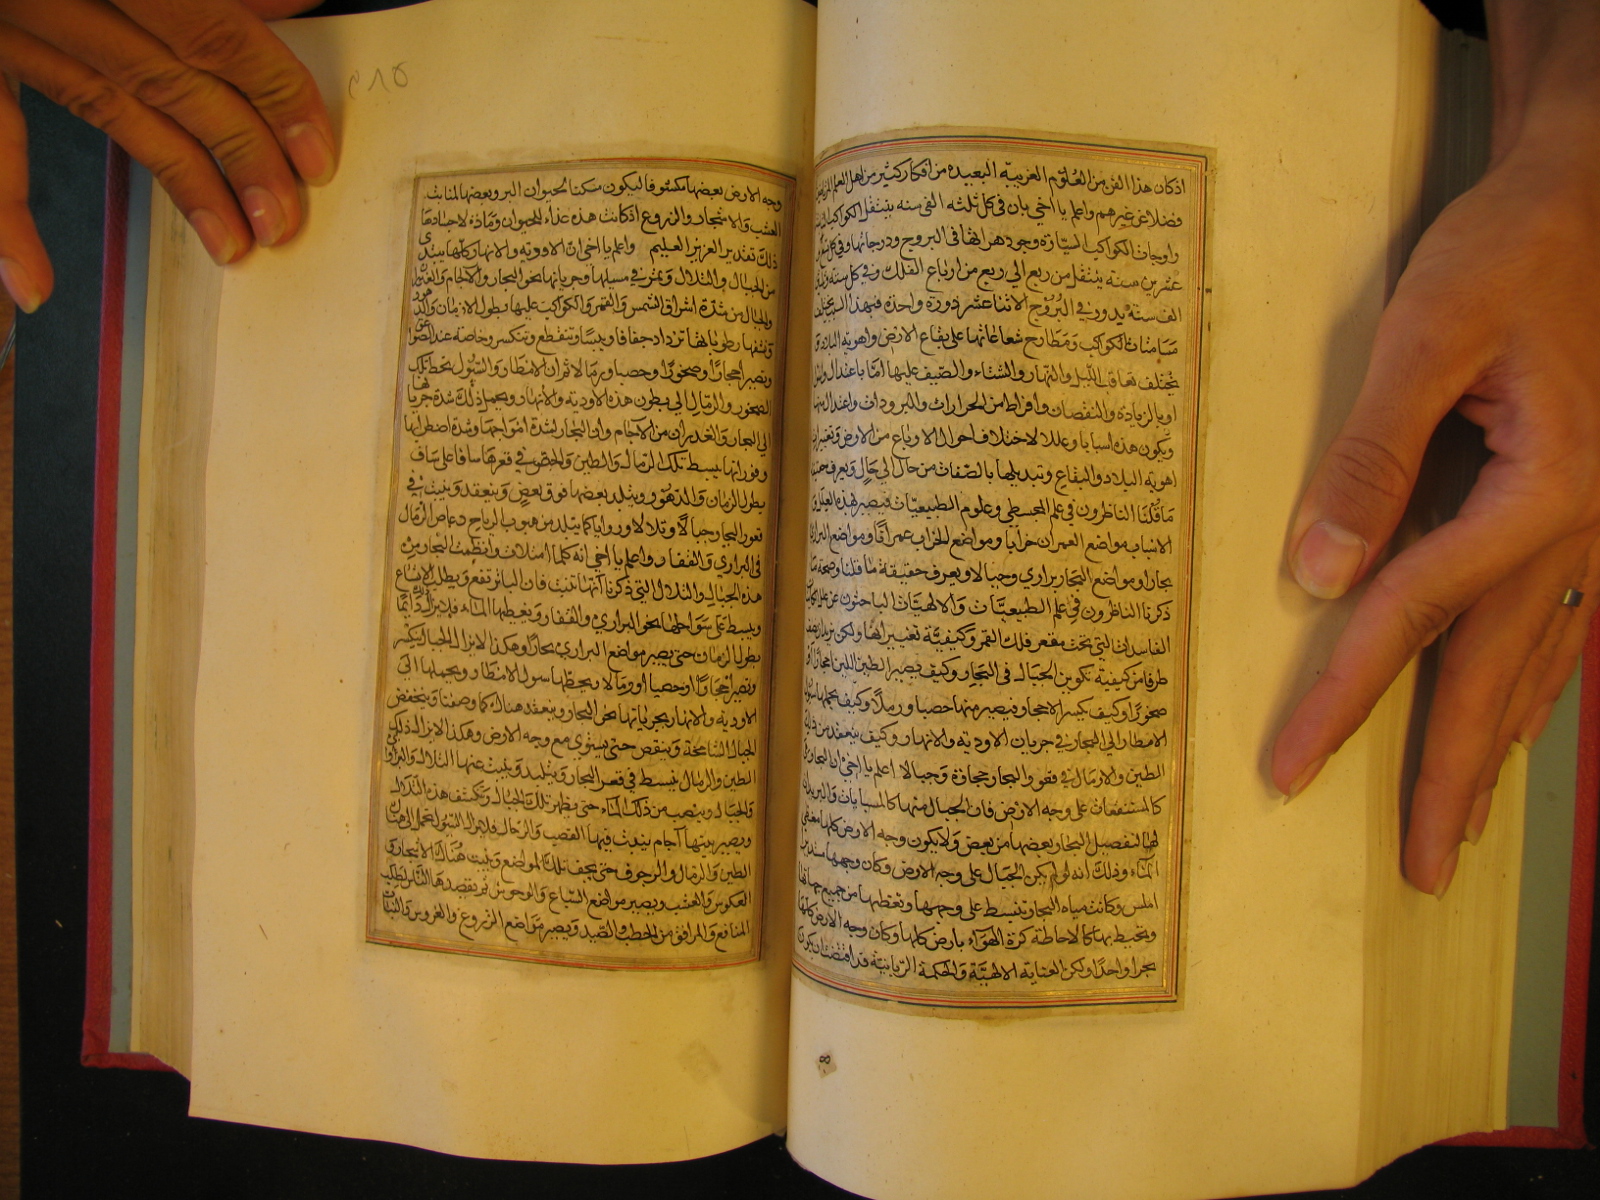 اذ كان هذا الفن من العلوم الغريبة البعيدة من افكار كثير من اهل العلم
فضلا عن غيرهم واعلم يا اخي بان في كل ثلثه الف سنه ينتقل الكواكب
واوجات الكواكب السيارة وجوزهراتها في البروج ودرجاتها وفي كل
عشرين سنه ينتقل من ربع الي ربع من ارباع الفلك وفي كل سته
الف سنة يدور في البروج الاثنا عشر دورة واحدة فبهذا السبب يختلف
مسامتات الكواكب ومطارح شعاعاتها علي بقاع الارض واهوية البلاد
يختلف تعاقب الليل والنهار والشتاء والصيف عليها اما باعتدال
او بالزيادة والنقصان وافراط من الحرارات والبرودات واعتدال منها
ويكون هذه اسبابا وعللا لاختلاف احوال الارباع من الارض وتغيرات
اهوية البلاد والبقاع وتبديلها بالصفات من حال الي حال ويعرف حقيقة
ما قلنا الناظرون في علم المجسطي وعلوم الطبيعيات فيصير بهذه العلل
الاسباب مواضع العمران خرابا ومواضع الخراب عمرانا ومواضع البراري
بحارا ومواضع البحار براري وجبالا ويعرف حقيقة ما قلنا وصحة ما
ذكرنا الناظرون في علم الطبيعيات والالهيات الباحثون عن علل الكائنات
الفاسدات التي تحت مقعر فلك القمر وكيفية تغييراتها ولكن نريد ان نصف
طرفا من كيفية تكوين الجبال في البحار وكيف يصير الطين اللين احجارا
صخورا وكيف يكسر الاحجار فيصير منها حصبا ورملا وكيف يحملها سيول
الامطار الي البحار في جريان الاودية والانهار وكيف ينعقد من ذلك
الطين والارمال في قعور البحار حجارة وجبالا اعلم يا اخي ان البحار هي
كالمستنقعات علي وجه الارض فان الجبال منها كالمسنيات والبريدات
لها لتفصيل البحار بعضها من بعض ولا يكون وجه الارض كلها مغطي
الماء وذلك انه لو لم يكن الجبال علي وجه الارض وكان وجهها مستدير
املس وكانت مياه البحار تنبسط علي وجهها وتغطيها من جميع جهاتها
وتحيط بها كالاحاطة كرة الهواء بارض كلها وكان وجه الارض كلها
بحرا واحدا ولكن العناية الالهية والحكمة الربانية قد اقتضت ان يكون
٥٨٩
وجه الارض بعضها مكشوفا ليكون مسكنا لحيوان البر وبعضها لمنابت
العشب والاشجار والزروع اذ كانت هذه غذاء للحيوان ومادة لاجسادها
ذلك تقدير العزيز العليم واعلم يا اخي ان الاودية والانهار كلها يبتدي
من الجبال والتلال ويمر في مسيلها وجريانها نحو البحار والآجام والغدران
والجبال من شدة اشراق الشمس والقمر والكواكب عليها بطول الازمان والدهور
وتنشف رطوباتها تزداد جفافا ويبسا وتنقطع وتنكسر وخاصة عند الصواعق
وتصير احجارا وصخورا وحصبا ورمالا ثم ان الامطار والسيول يحط تلك
الصخور والرمال الي بطون هذه الاودية والانهار ويحمل ذلك شدة جريانها
الي البحار والغدران من الآجام وان البحار لشدة امواجها وشدة اضطرابها
وفورانها يبسط تلك الرمال والطين والحصي في قعرها سافا علي ساف
بطول الزمان والدهور ويتلبد بعضها فوق بعض وينعقد وينبت في
قعور البحار جبالا وتلالا وروابيا كما يتلبد من هبوب الرياح دعاص الرمال
في البراري والقفار واعلم يا اخي انه كلما امتلات وانطمت البحار من
هذه الجبال والتلال التي ذكرنا انها تنبت فان الماء يرتفع ويطلب الاتساع
وينبسط علي سواحلها نحو البراري والقفار ويغطيها الماء فلا يزال ذلك دائما
بطول الزمان حتي يصير مواضع البراري بحارا وهكذا لا يزال الجبال تكسر
وتصير احجارا وحصبا ورمالا ويحطها سيول الامطار ويحملها الي
الاودية والانهار بجرياتها نحو البحار وينعقد هناك كما وصفنا وينخفض
الجبال الشامخة وينقص حتي يستوي مع وجه الارض وهكذا لا يزال ذلك
الطين والرمال ينبسط في قعر البحار ويتلبد وينبت عنها التلال والروابي
والجبال وينصب من ذلك الماء حتي يظهر تلك الجبال وتكشف هذه التلال
ويصير بينها آجام ينبت فيها القصب والدحال فلا يزال السيول يحمل الي هناك
الطين والرمال والرجوف حتي يجف تلك المواضع وينبت هناك الاشجار و
العكوس والعشب ويصير مواضع السباع والوحوش ثم يقصدها الناس لطلب
المنافع والمرافق من الحطب والصيد ويصير مواضع الزروع والغروس والنبات